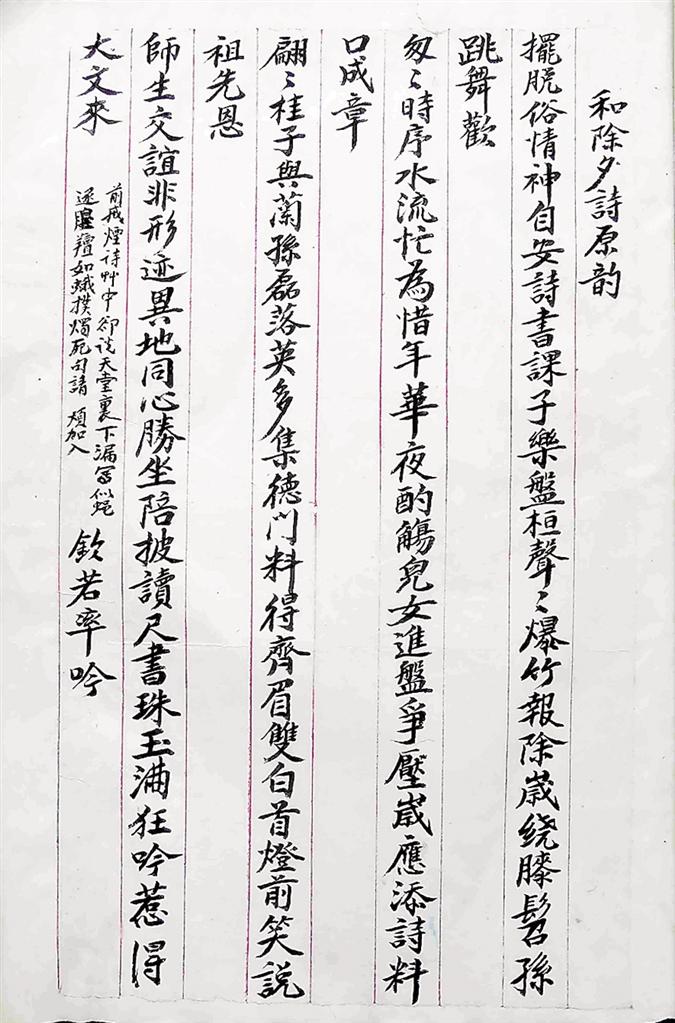 和除夕詩原韵
擺脫俗情神自安詩書課子樂盤桓聲〻爆竹報除歲绕膝髫孫
跳舞歡
匆〻時序水流忙為惜年華夜酌觴兒女進盤爭壓歲應添詩料
口成章
翩〻桂子與蘭孫磊落英多集德門料得齊眉雙白首燈前笑説
祖先恩
師生交誼非形迹異地同心勝坐陪披讀尺書珠玉滿狂吟惹得
大文來
前戒煙诗艸中卻说天堂裏下漏写似蚝
逐羶如蛾撲燭死句請 煩加入
欽若率吟